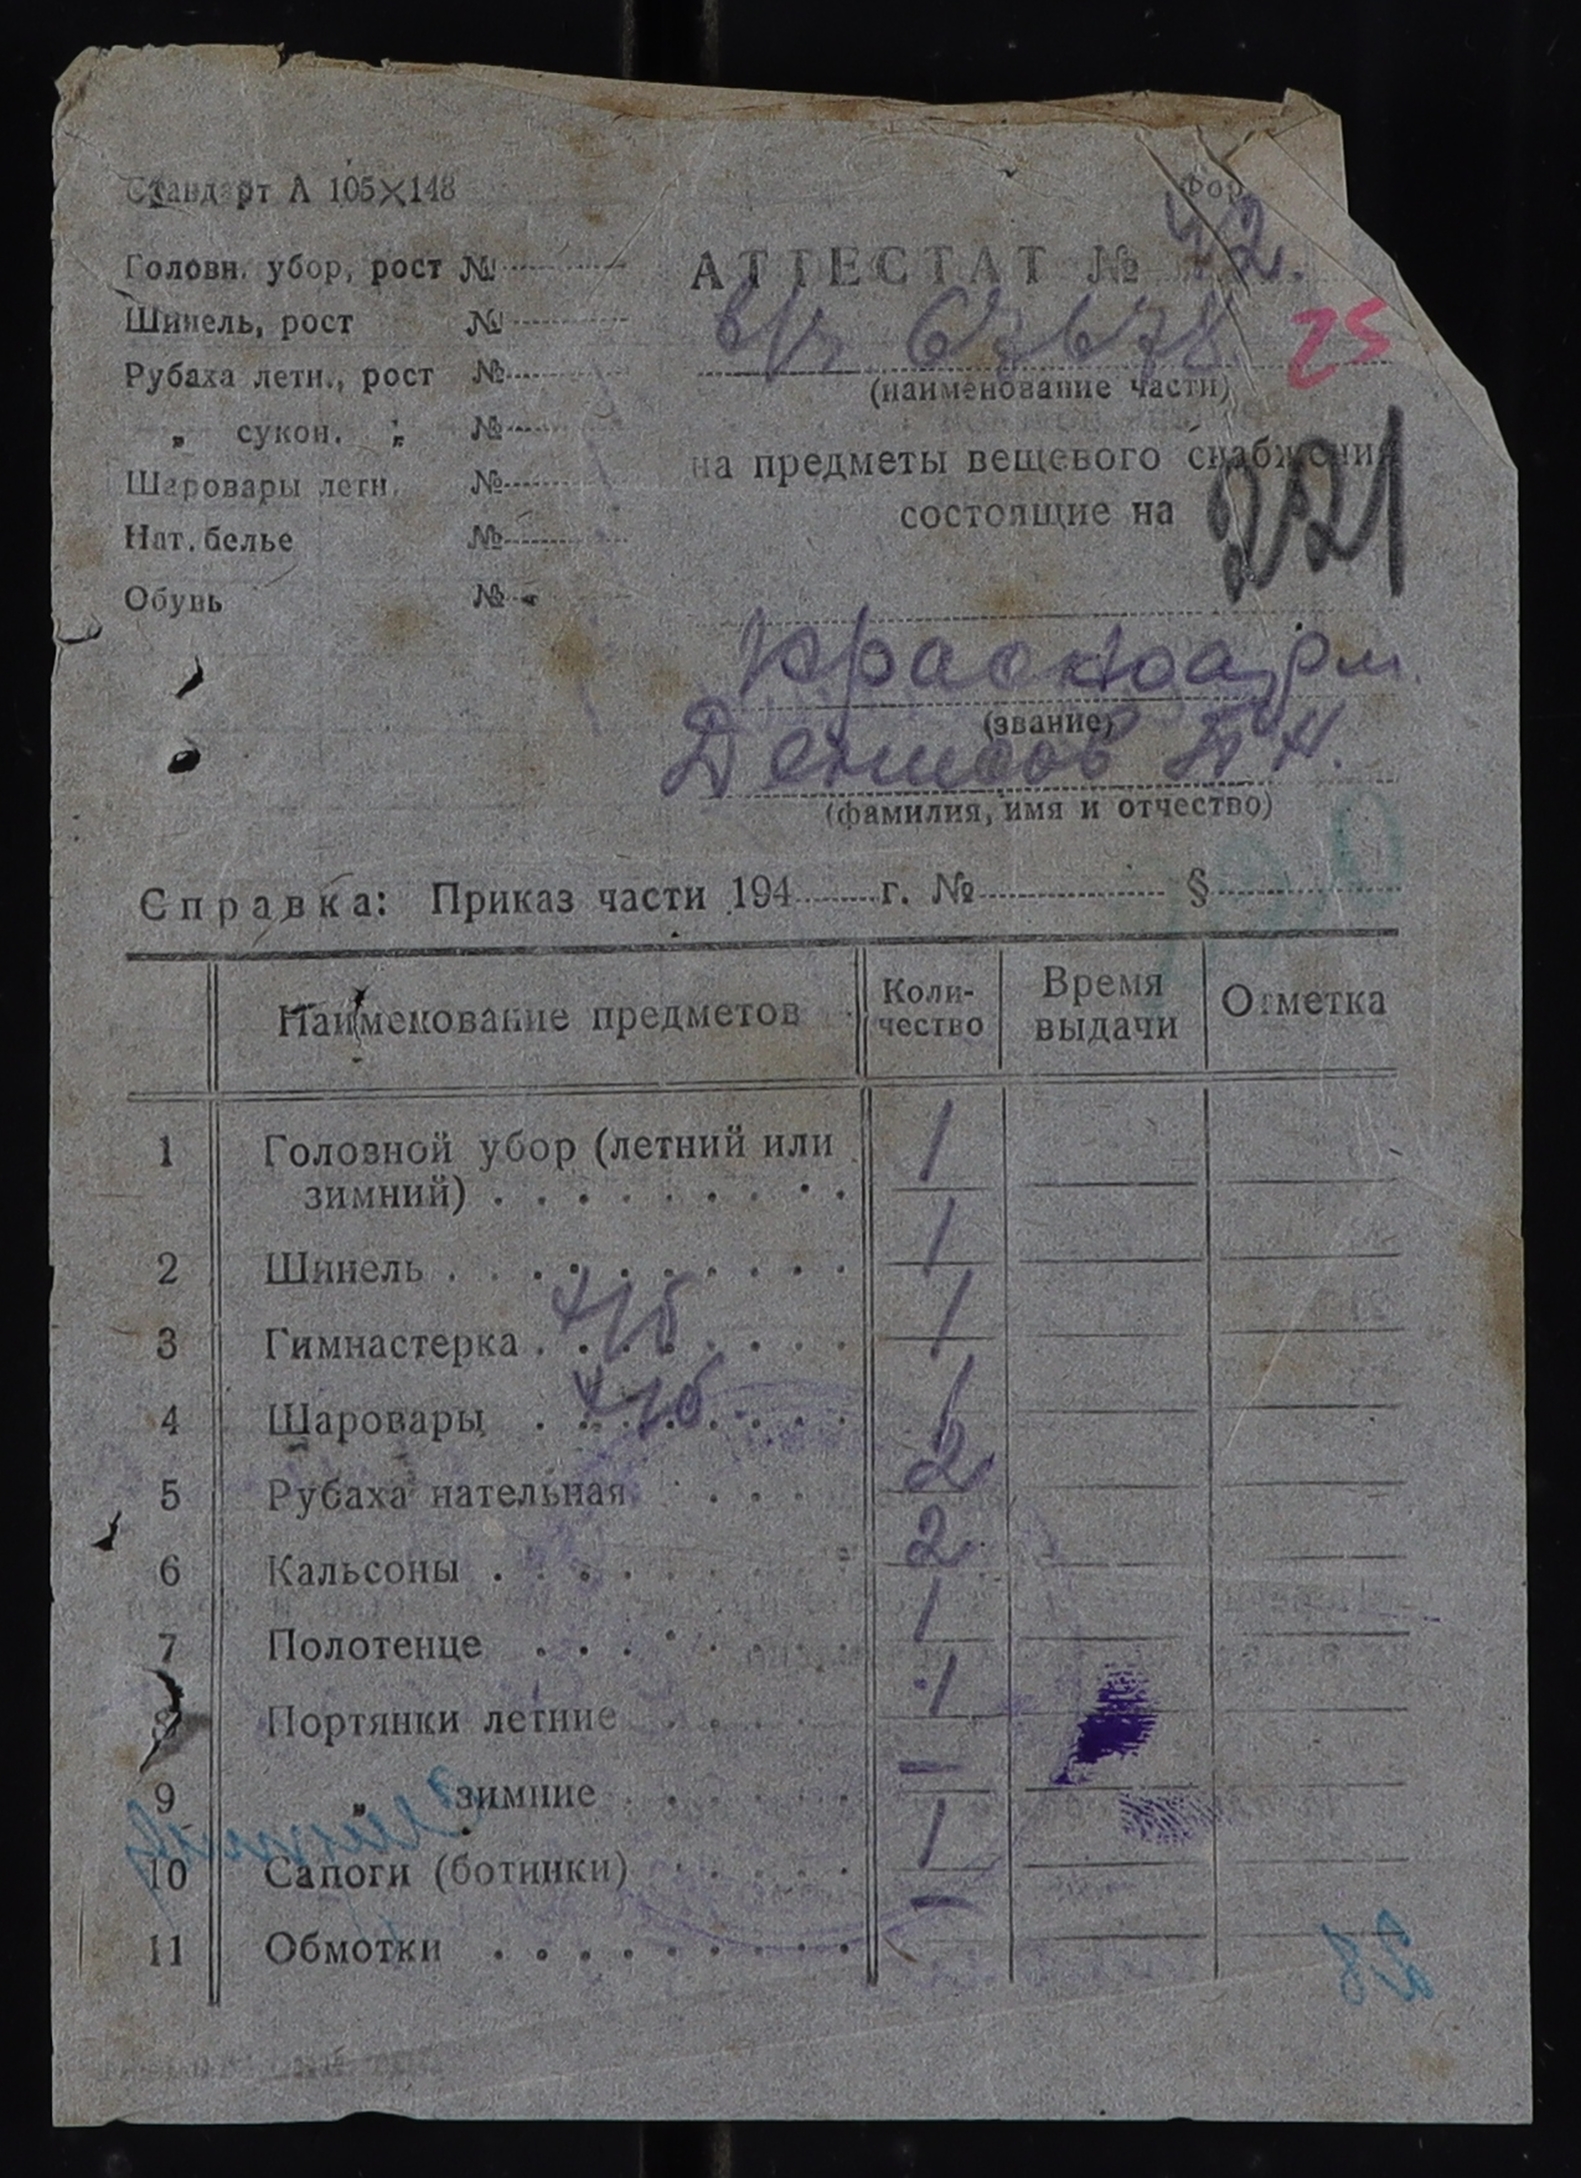 Стандарт А 105×148
Фор
Головн. убор, рост №
Шинель, рост №
Рубаха летн., рост №
„ сукон. „ №
Шаровары летн. №
Нат. белье №
Обувь №
АТТЕСТАТ № 42.
в/ч 67678. 25
(наименование части)
на предметы вещевого снабжени
состоящие на 221
красноарм.
(звание)
Денисов П Н.
(фамилия, имя и отчество)
Справка: Приказ части 194 г. № §
Наименование предметов Коли-чество Время выдачи Отметка
1 Головной убор (летний или зимний) 1
2 Шинель 1
3 Гимнастерка х/б 1
4 Шаровары х/б 1
5 Рубаха нательная 2
6 Кальсоны 2
7 Полотенце 1
8 Портянки летние 1
9 „ зимние —
10 Сапоги (ботинки) 1
11 Обмотки —